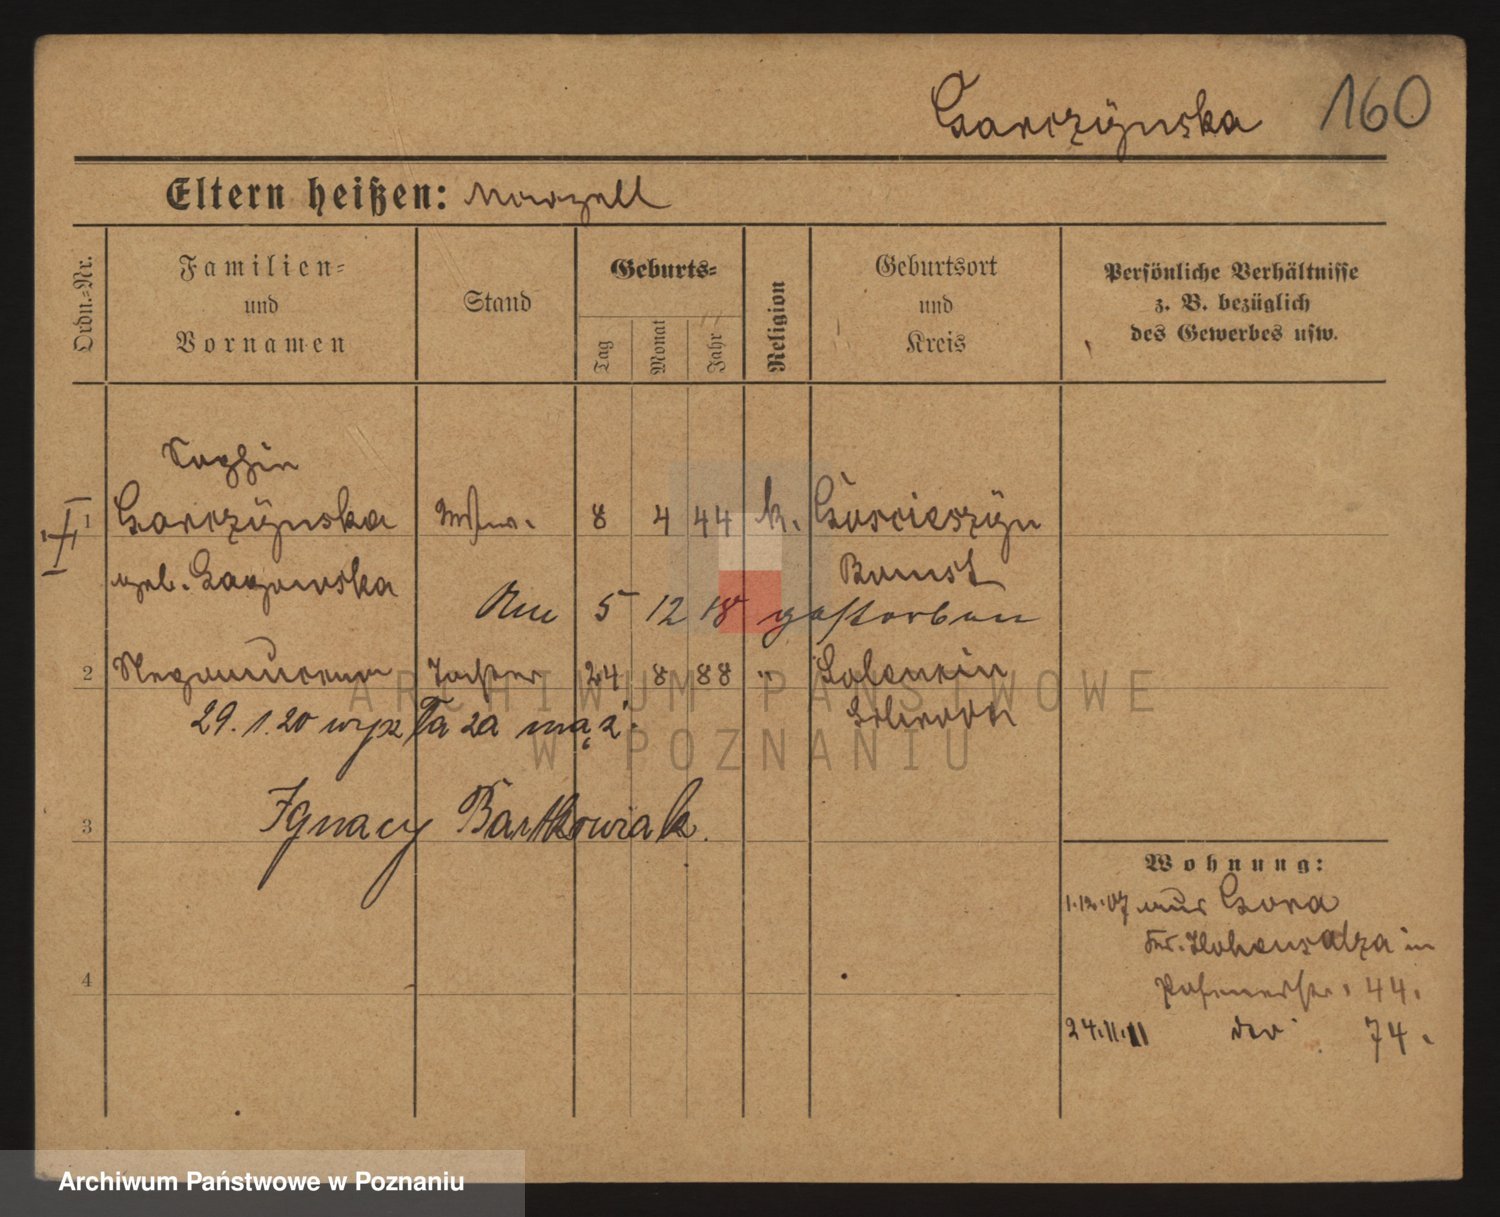 Garczÿnska 160
Eltern heißen: Marzell
Ordn.-Nr.
Familien-
und
Vornamen
Stand
Geburts-
Tag
Monat
Jahr
Religion
Geburtsort
und
Kreis
Persönliche Verhältnisse
z. B. bezüglich
des Gewerbes usw.
Sophie
1 Garczÿnska 8 4 44 k. Gościeszÿn
geb. Bomst
Am 5 12 18 gestorben
2 Nepomucena Tochter 24 8 88 "
29. 1. 20 wyszła za mąż
Ignacy Bartkowiak.
3
Wohnung:
1.12.07 aus Gora
Kr. Hohensalza in
Posenerstr. 44.
4
24.11.11 74.
ARCHIWUM PAŃSTWOWE
W POZNANIU
Archiwum Państwowe w Poznaniu